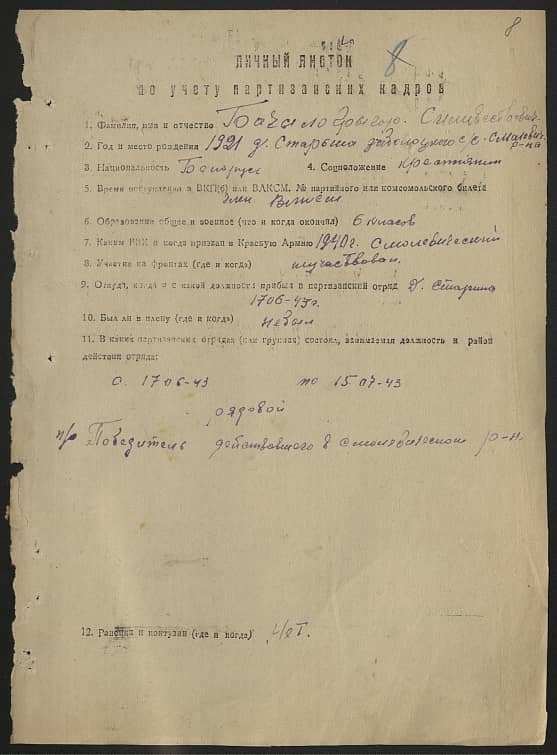 8
8
ЛИЧНЫЙ ЛИСТОК
по учету партизанских кадров
1. Фамилия, имя и отчество Бачило
2. Год и место рождения 1921 д. Старына с/с. Смолевич. р-на
3. Национальность Белорус 4. Соцположение крестянин
5. Время поступления в ВКП(б) или ВЛКСМ, № партийного или комсомольского билета
член ВЛКСМ
6. Образование общее и военное (что и когда окончил) 6 класов
7. Каким РВК и когда призван в Красную Армию 1940г. Смолевический
8. Участие на фронтах (где и когда) неучавствовал
9. Откуда, когда и с какой должности прибыл в партизанский отряд Д. Старина
17 06-43г.
10. Был ли в плену (где и когда) небыл
11. В каких партизанских отрядах (или группах) состоял, занимаемая должность и район
действия отряда:
с. 17 06-43 по 15 07-43
рядовой
п/о Победитель действовавшего в смолевическом р-н.
12. Ранения и контузии (где и когда) Нет.